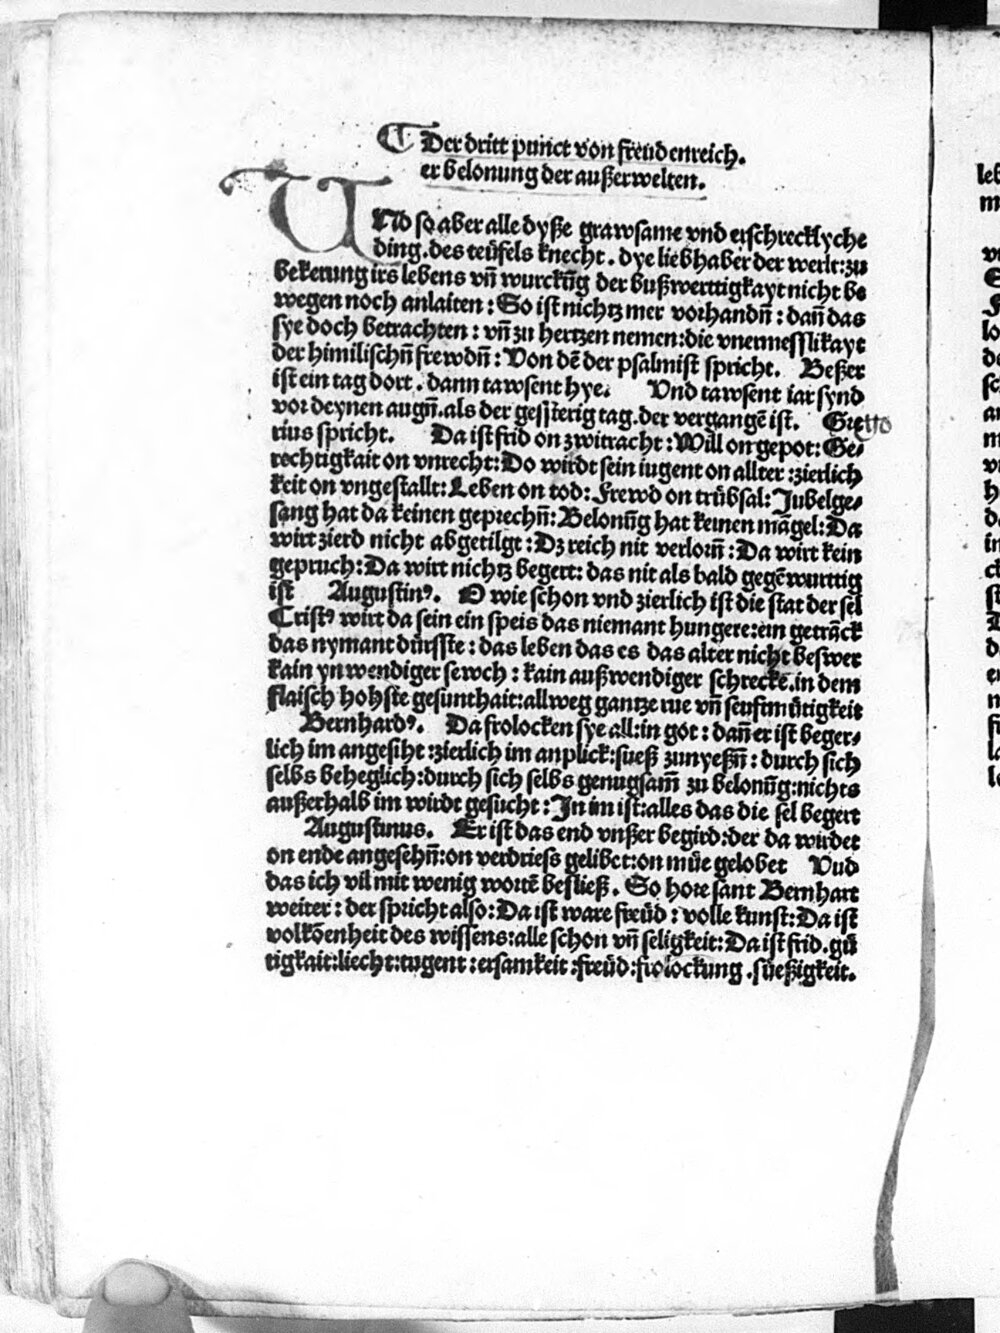 Der dritt punct von freüdenreich.
er belonung der außerwelten.
VNd so aber alle dyße grawsame vnd erschrecklyche
ding.des teüfels knecht. dye liebhaber der werlt:zu
bekerung irs lebens vn̄ wurckūg der bußwerttigkayt nicht be
wegen noch anlaiten: So ist nichtz mer vorhandn̄: dan̄ das
sye doch betrachten: vn̄ zu hertzen nemen:die vnermesslikayt
der himilischn̄ frewdn̄: Von dē der psalmist spricht. Beßer
ist ein tag dort. dann tawsent hye. Vnd tawsent iar synd
vor deynen augn̄.als der gesterig tag.der vergangē ist. Gre
rius spricht. Da ist frid on zwitracht: Will on gepot: Ge⸗
rechtigkait on vnrecht: Do wirdt sein iugent on allter:zierlich
keit on vngestallt: Leben on tod: Frewd on trübsal: Jubelge⸗
sang hat da keinen geprechn̄: Belonūg hat keinen māgel: Da
wirt zierd nicht abgetilgt: Dz reich nit verlorn̄: Da wirt kein
gepruch: Da wirt nichtz begert: das nit als bald gegēwurttig
ist Augustinꝰ. O wie schon vnd zierlich ist die stat der sel
Cristꝰ wirt da sein ein speis das niemant hungere:ein getrāck
das nymant dürsste: das leben das es das alter nicht beswer
kain ynwendiger sewch: kain außwendiger schreckē.in dem
flaisch hohste gesunthait:allweg gantze rue vn̄ senftmütigkeit
Bernhardꝰ. Da frolocken sye all:in got: dan̄ er ist beger⸗
lich im angesiht:zierlich im anplick:sueß zunyeßn̄: durch sich
selbs beheglich:durch sich selbs genugsam̄ zu belonūg:nichts
außerhalb im wirdt gesucht: Jn im ist:alles das die sel begert
Augustinus. Er ist das end vnßer begird:der da wirdet
on ende angesehn̄:on verdriess gelibet:on müe gelobet Vud
das ich vil mit wenig wortē besließ. So hore sant Bernhart
weiter: der spricht also: Da ist ware freüd: volle kunst: Da ist
volkōenheit des wissens:alle schon vn̄ seligkeit: Da ist frid.gü
tigkait:liecht:tugent:ersamkeit:freüd:frolockung.süeßigkeit.